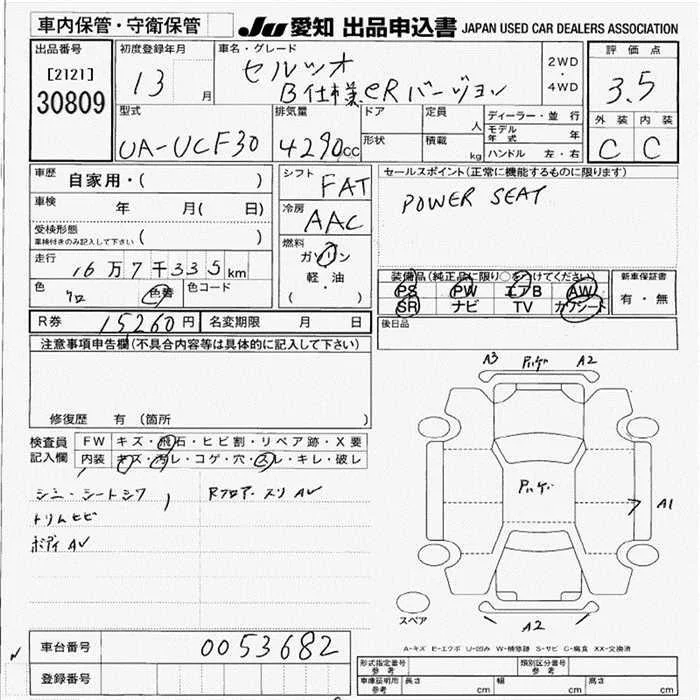 車内保管・守衛保管
JU 愛知 出品申込書 JAPAN USED CAR DEALERS ASSOCIATION
出品番号
[2121]
30809
初度登録年月
13 月
車名・グレード
セルシオ
B仕様eRバージョン
2WD
・
4WD
評価点
3.5
外装 内装
C C
型式
UA-UCF30
排気量
4290cc
ドア
定員
人
形状
積載
kg
ディーラー・並行
モデル年式 年
ハンドル 左・右
車歴 自家用・( )
車検 年 月( 日)
受検形態
車検付きのみ記入して下さい ( )
走行
16万7千335km
色
クロ
色替
色コード
シフト
FAT
冷房
AAC
燃料
ガソリン
軽・油
( )
セールスポイント(正常に機能するものに限ります)
POWER SEAT
装備品(純正品に限り○をつけてください)
PS PW エアB AW
SR ナビ TV カワシート
新車保証書
有・無
後日品
R券 15260円
名変期限 月 日
注意事項申告欄(不具合内容等は具体的に記入して下さい)
修復歴 有(箇所 )
検査員
記入欄
FW キズ・飛石・ヒビ割・リペア跡・X要
内装 キズ・汚レ・コゲ・穴・スレ・キレ・破レ
シミ・シートシワ
Rフロアースリ AV
トリムヒビ
ボディ AV
A3 A2
A1
A2
スペア
A-キズ E-エクボ U-凹み W-補修跡 S-サビ C-腐食 XX-交換済
車台番号 0053682
登録番号
形式指定番号
参考
類別区分番号
参考
車庫証明用
参考
長さ cm 幅 cm 高さ cm